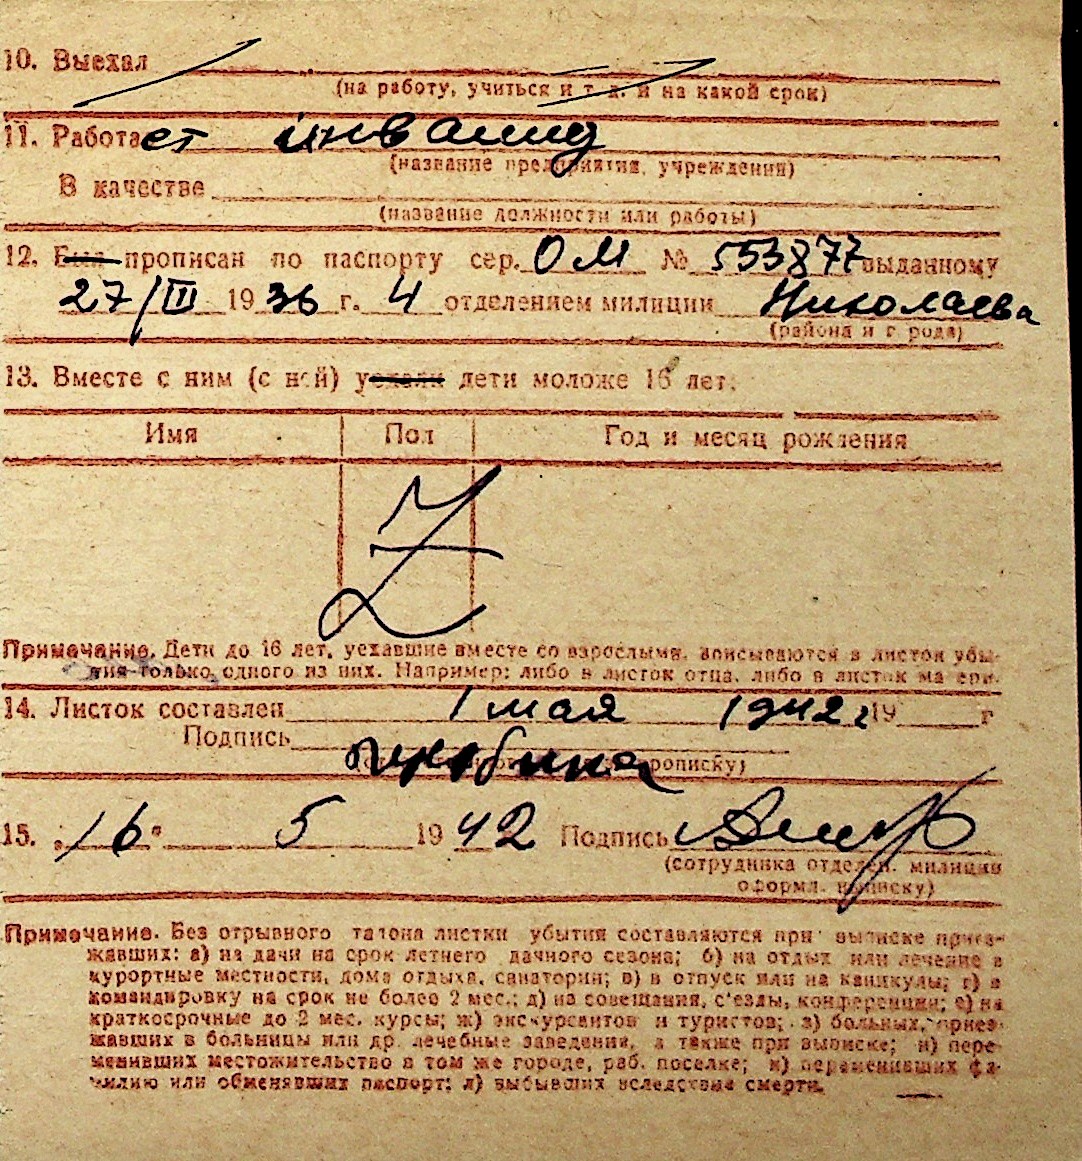 10. Выехал
(на работу, учиться и т. д. и на какой срок)
11. Работает инвалид
(название предприятия, учреждения)
В качестве
(название должности или работы)
12. Был прописан по паспорту сер. ОМ № 553877 выданному
27/III 1936 г. 4 отделением милиции Николаева
(района и города)
13. Вместе с ним (с ней) уехали дети моложе 16 лет:
Имя Пол Год и месяц рождения
Z
Примечание. Дети до 16 лет, уехавшие вместе со взрослыми, вписываются в листок убы-
тия только одного из них. Например: либо в листок отца, либо в листок матери.
14. Листок составлен 1 мая 1942 г 19 г
Подпись
прописку)
15. „16" 5 1942 Подпись
(сотрудника отделен. милиции
оформл. выписку)
Примечание. Без отрывного талона листки убытия составляются при выписке приез-
жавших: а) на дачи на срок летнего дачного сезона; б) на отдых или лечение в
курортные местности, дома отдыха, санатории; в) в отпуск или на каникулы; г) в
командировку на срок не более 2 мес.; д) на совещания, с'езды, конференции; е) на
краткосрочные до 2 мес. курсы; ж) экскурсантов и туристов; з) больных, приез-
жавших в больницы или др. лечебные заведения, а также при выписке; и) пере-
менивших местожительство в том же городе, раб. поселке; к) переменивших фа-
милию или обменявших паспорт; л) выбывших вследствие смерти.